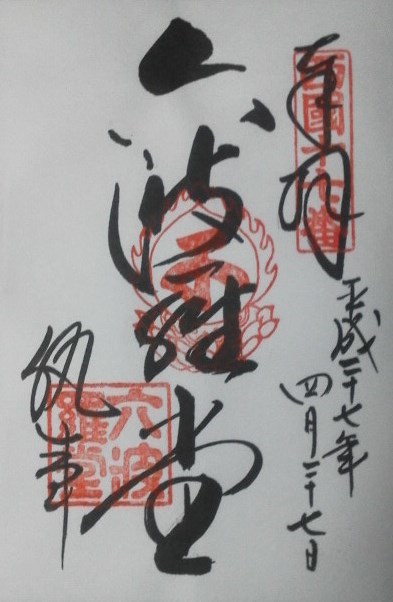 西國十七番
奉拝
平成二十七年
四月二十七日
六波羅堂
六波
羅堂
執事